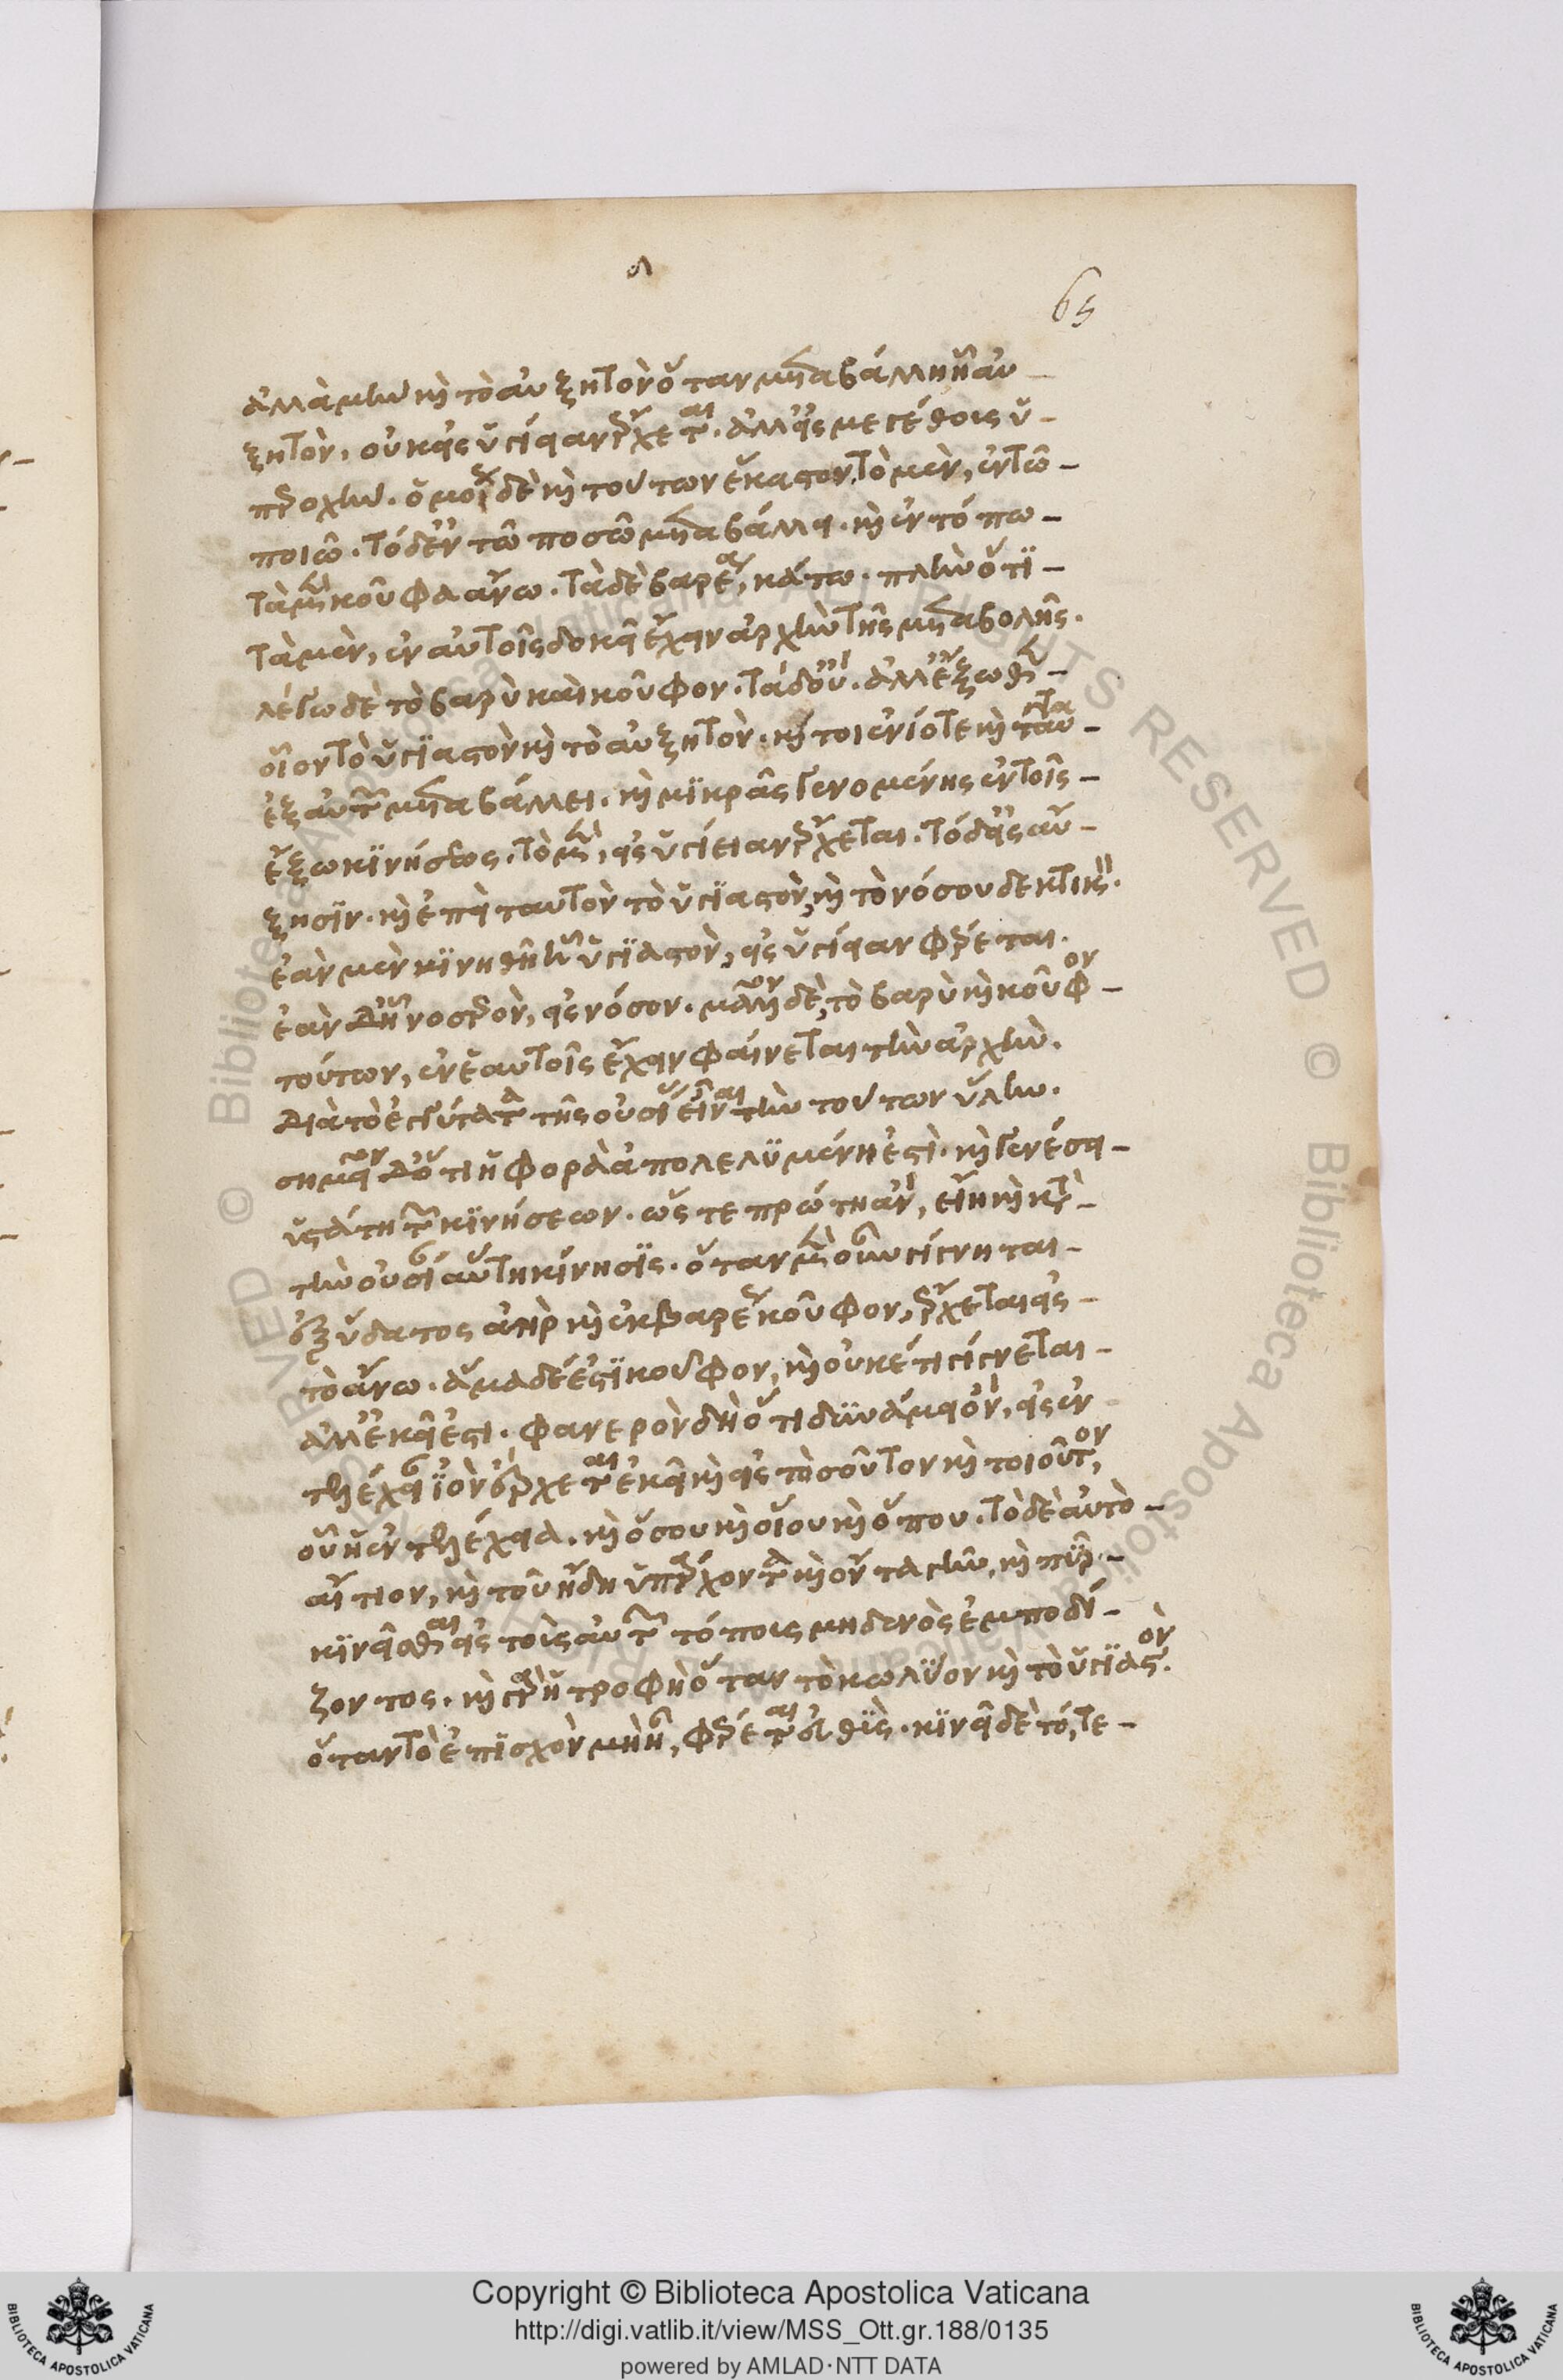 λ
65
ἀλλὰ μὴν καὶ τὸ αὐξητὸν ὅταν μεταβάλλη ἧ αὐ-
ξητὸν, οὐκ εἰς ὑγίειαν ἔρχεται. ἀλλ' εἰς μεγέθους ὑ-
περοχήν. ὁμοίως δὲ καὶ τούτων ἕκαστον. τὸ μὲν, ἐν τῶ-
ποιῶ. τὸ δ' ἐν τῶ ποσῶ μεταβάλλει. καὶ ἐν τόπω-
τὰ μὲν κοῦφα ἄνω. τὰ δὲ βαρέα, κάτω. πλὴν ὅτι-
τὰ μὲν, ἐν αὐτοῖς δοκεῖ ἔχειν ἀρχὴν τῆς μεταβολῆς.
λέγω δὲ τὸ βαρὺ καὶ κοῦφον. τὰ δ' οὔ. ἀλλ' ἔξωθεν-
οἷον τὸ ὑγιαστὸν καὶ τὸ αὐξητόν. καίτοι ἐνίοτε καὶ ταῦτα-
ἐξ αὐτῶν μεταβάλλει. καὶ μικρᾶς γενομένης ἐν τοῖς-
ἔξω κινήσεως. τὸ μὲν, εἰς ὑγίειαν ἔρχεται. τὸ δ' εἰς αὔ-
ξησιν. καὶ ἐπεὶ ταυτὸν τὸ ὑγιαστὸν, καὶ τὸ νόσου δεκτικόν.
ἐὰν μὲν κινηθῆ ἧ ὑγιαστὸν, εἰς ὑγίειαν φέρεται.
ἐὰν δ' ἧ νοσερὸν, εἰς νόσον. μᾶλλον δὲ, τὸ βαρὺ καὶ κοῦφον-
τούτων, ἐν ἑαυτοῖς ἔχειν φαίνεται τὴν ἀρχὴν.
διὰ τὸ ἐγγύτατα τῆς οὐσίας εἶναι τὴν τούτων ὕλην.
σημεῖον δ' ὅτι ἡ φορὰ ἀπολελυμένη ἐστὶ. καὶ γενέσει-
ὑστάτη τῶν κινήσεων. ὥστε πρώτη ἂν, εἴη κατὰ-
τὴν οὐσίαν αὕτη κίνησις. ὅταν μὲν οὖν γίγνηται-
ἐξ ὕδατος ἀὴρ καὶ ἐκ βαρέος κοῦφον, ἔρχεται εἰς-
τὸ ἄνω. ἅμα δέ ἐστι κοῦφον, καὶ οὐκέτι γίγνεται-
ἀλλ' ἐκεῖ ἐστι. φανερὸν δὴ ὅτι δυνάμει ὂν, εἰς ἐν
τελέχειαν ἰὸν ἔρχεται ἐκεῖ καὶ εἰς τοσοῦτον καὶ τοιοῦτον,
οὗ ἡ ἐντελέχεια. καὶ ὅσου καὶ οἵου καὶ ὅπου. τὸ δὲ αὐτὸ-
αἴτιον, καὶ τοῦ ἤδη ὑπάρχοντα καὶ ὄντα γῆν, καὶ πῦρ-
κινεῖσθαι εἰς τοὺς αὐτῶν τόπους μηδενὸς ἐμποδί-
ζοντος. καὶ γὰρ ἡ τροφὴ ὅταν τὸ κωλῦον καὶ τὸ ὑγιαστόν.
ὅταν τὸ ἐπισχὸν μὴ ἦ, φέρεται εὐθὺς. κινεῖ δὲ τό, τε-
Copyright © Biblioteca Apostolica Vaticana
http://digi.vatlib.it/view/MSS_Ott.gr.188/0135
powered by AMLAD·NTT DATA